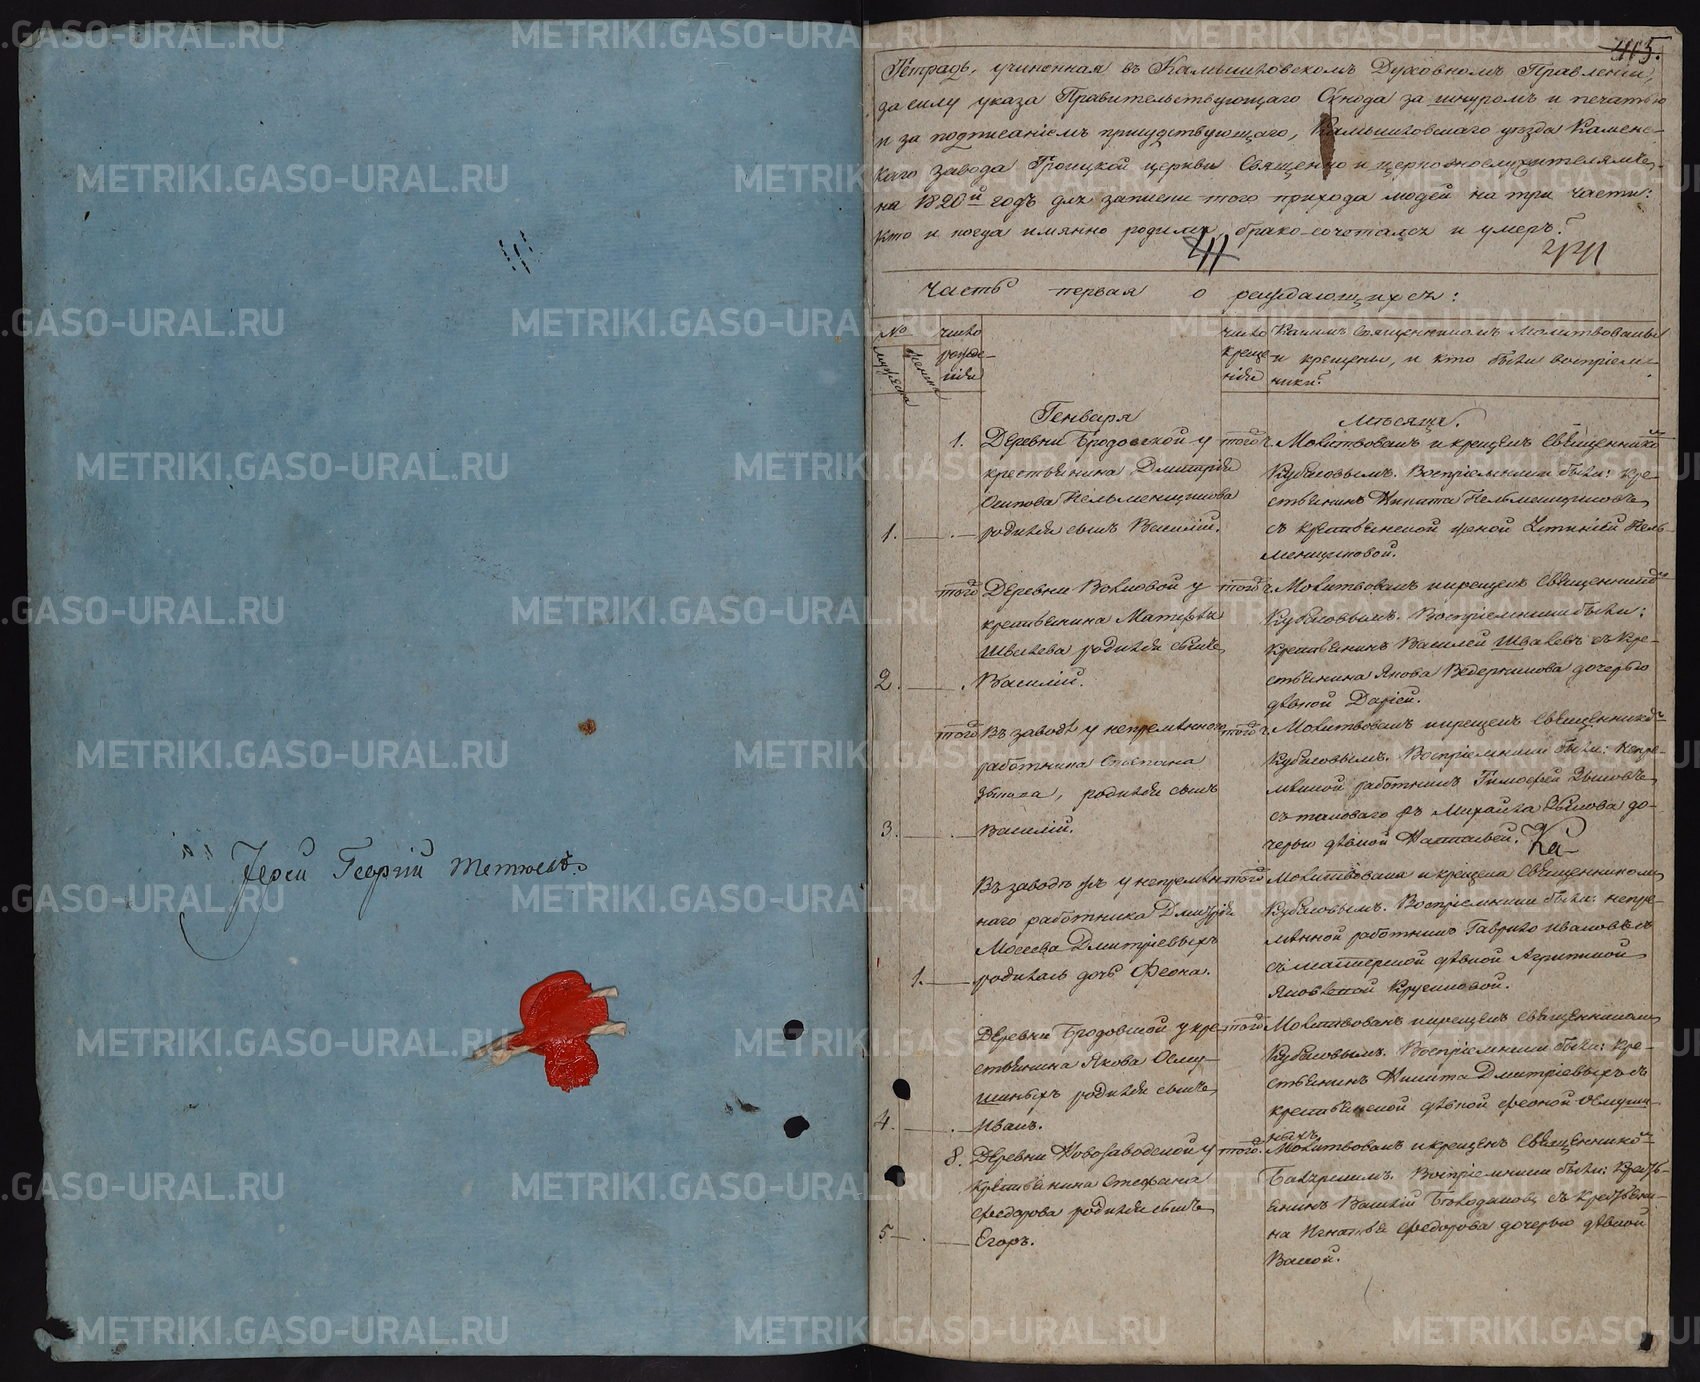 Іерей Георгій
415.
Тетрадь, учиненная въ Камышловскомъ Духовномъ Правленіи,
за силу указа Правительствующаго Сѵнода за шнуромъ и печатью
и за подписаніемъ присудствующаго, Камышловскаго уѣзда Каменс-
каго завода Троицкой церкви Священно и церковнослужителямъ,
на 1820й годъ для записки того прихода людей на три части:
кто и когда имянно родился, брако-сочетался и умеръ.
411
Часть первая о раждающихся:
№
мужеска
женска
число
рожде-
нія
число
креще-
нія
Какимъ Священникомъ Молитвованы
и крещены, и кто были воспріем-
ники.
Генваря
Мѣсяца.
1.
1.
Деревни Бродовской у
крестьянина Дмитрія
Осипова Нельменщикова
родился сынъ Василій.
того
Молитвованъ и крещенъ Священникомъ
Кубасовымъ. Воспріемники были: кре-
стьянинъ Никита Нельменщиковъ
съ крестьянской женой Устиніей Нель-
менщиковой.
2.
того
Деревни Волковой у
крестьянина Матфея
Швалева родился сынъ
Василій.
того
Молитвованъ и крещенъ Священникомъ
Кубасовымъ. Воспріемники были:
крестьянинъ Василей Швалевъ съ кре-
стьянина Якова Ведерникова дочерью
дѣвкой Даріей.
3.
того
Въ заводѣ у непремѣнного
работника Степана
Зыкова, родился сынъ
Василій.
того
Молитвованъ и крещенъ Священникомъ
Кубасовымъ. Воспріемники были: непре-
мѣнной работникъ Тимофей Зыковъ
съ таковаго жъ Михайла Зыкова до-
черью дѣвкой Натальей.
Ка-
1.
Въ заводѣ жъ у непремѣн-
наго работника Дмитрія
Мосеева Дмитріевыхъ
родилась дочь Феона.
того
Молитвована и крещена Священникомъ
Кубасовымъ. Воспріемники были: непре-
мѣнной работникъ Гаврило Ивановъ съ
съ мастерской дѣвкой Агрипиной
Яковлевой
4.
Деревни Бродовской у кре-
стьянина Якова Осму-
шиныхъ родился сынъ
Иванъ.
того
Молитвованъ и крещенъ Священникомъ
Кубасовымъ. Воспріемники были: кре-
стьянинъ Никита Дмитріевыхъ съ
крестьянской дѣвкой Феоной Осмуши-
ныхъ.
5
8.
Деревни Новозаводской у
крестьянина Стефана
Федорова родился сынъ
Егоръ.
того
Молитвованъ и крещенъ Священникомъ
Воспріемники были: кресть-
янинъ Василій съ крестьяни-
на Игнатья Федорова дочерью дѣвкой